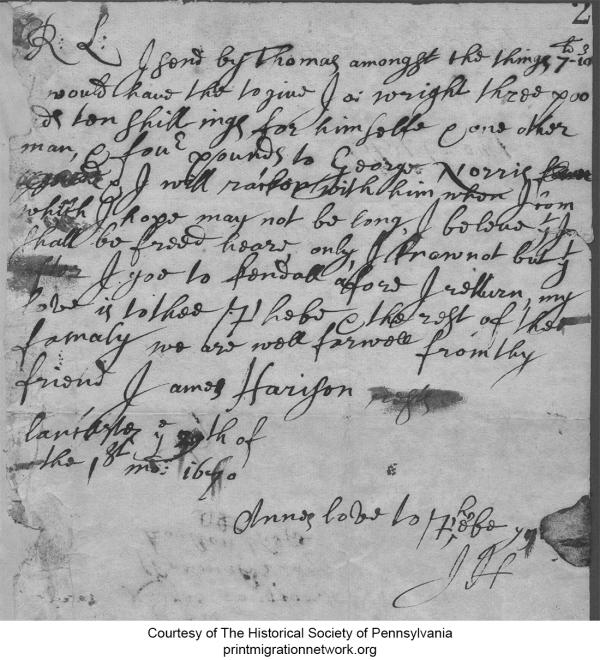 2
R L: I send by Thomas amongst the things 7-10
would have the to give J o: wright three poo
ds ten shill ings for himselfe & one other
man, & four pounds to George Norris
& I will racken with him when I com
which I hope may not be long, I beleve yt I
shall be freed heare, only, I know not but yt
I goe to Kendall afore I retturn, my
love is to thee Phebe & the rest of the
famaly we are well farwell from thy
friend James Harison
lancaster ye 29th of
the 1st mo: 1670
Annes love to Phebe
J H
Courtesy of The Historical Society of Pennsylvania
printmigrationnetwork.org